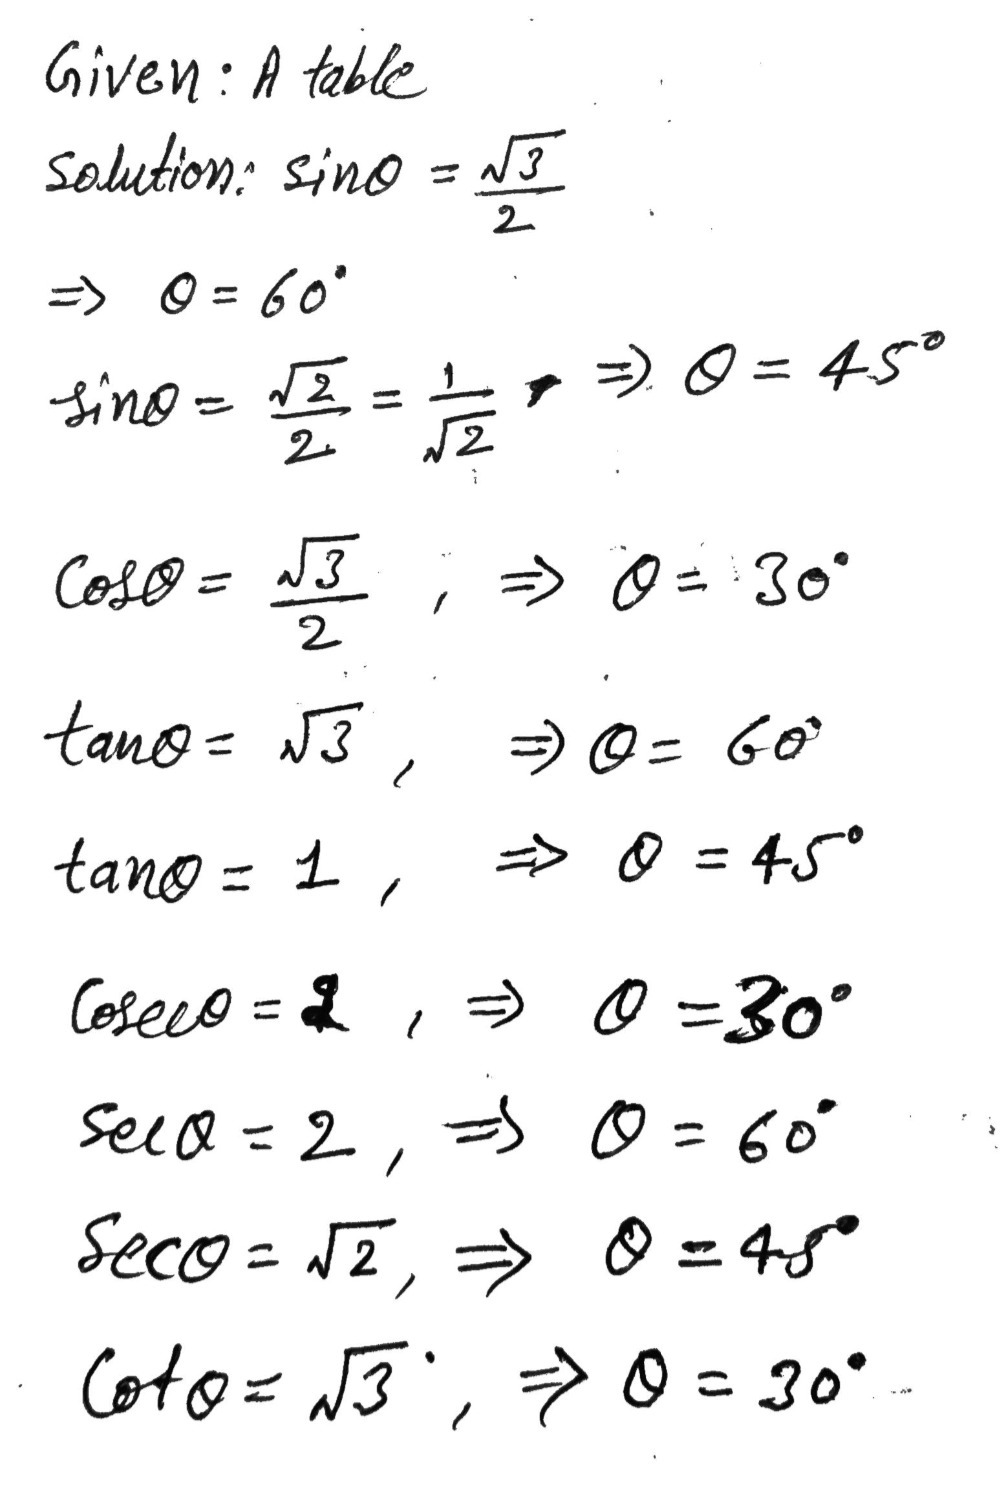 Given: A table
Solution: sinθ = √3/2
=> θ = 60°
sinθ = √2/2 = 1/√2 , => θ = 45°
Cosθ = √3/2 , => θ = 30°
tanθ = √3 , => θ = 60°
tanθ = 1 , => θ = 45°
Cosecθ = 2 , => θ = 30°
Secθ = 2 , => θ = 60°
Secθ = √2 , => θ = 45°
Cotθ = √3 , => θ = 30°